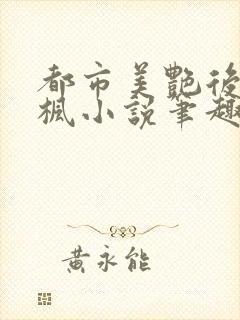 都市美艷後
楓小說筆趣
黃永能